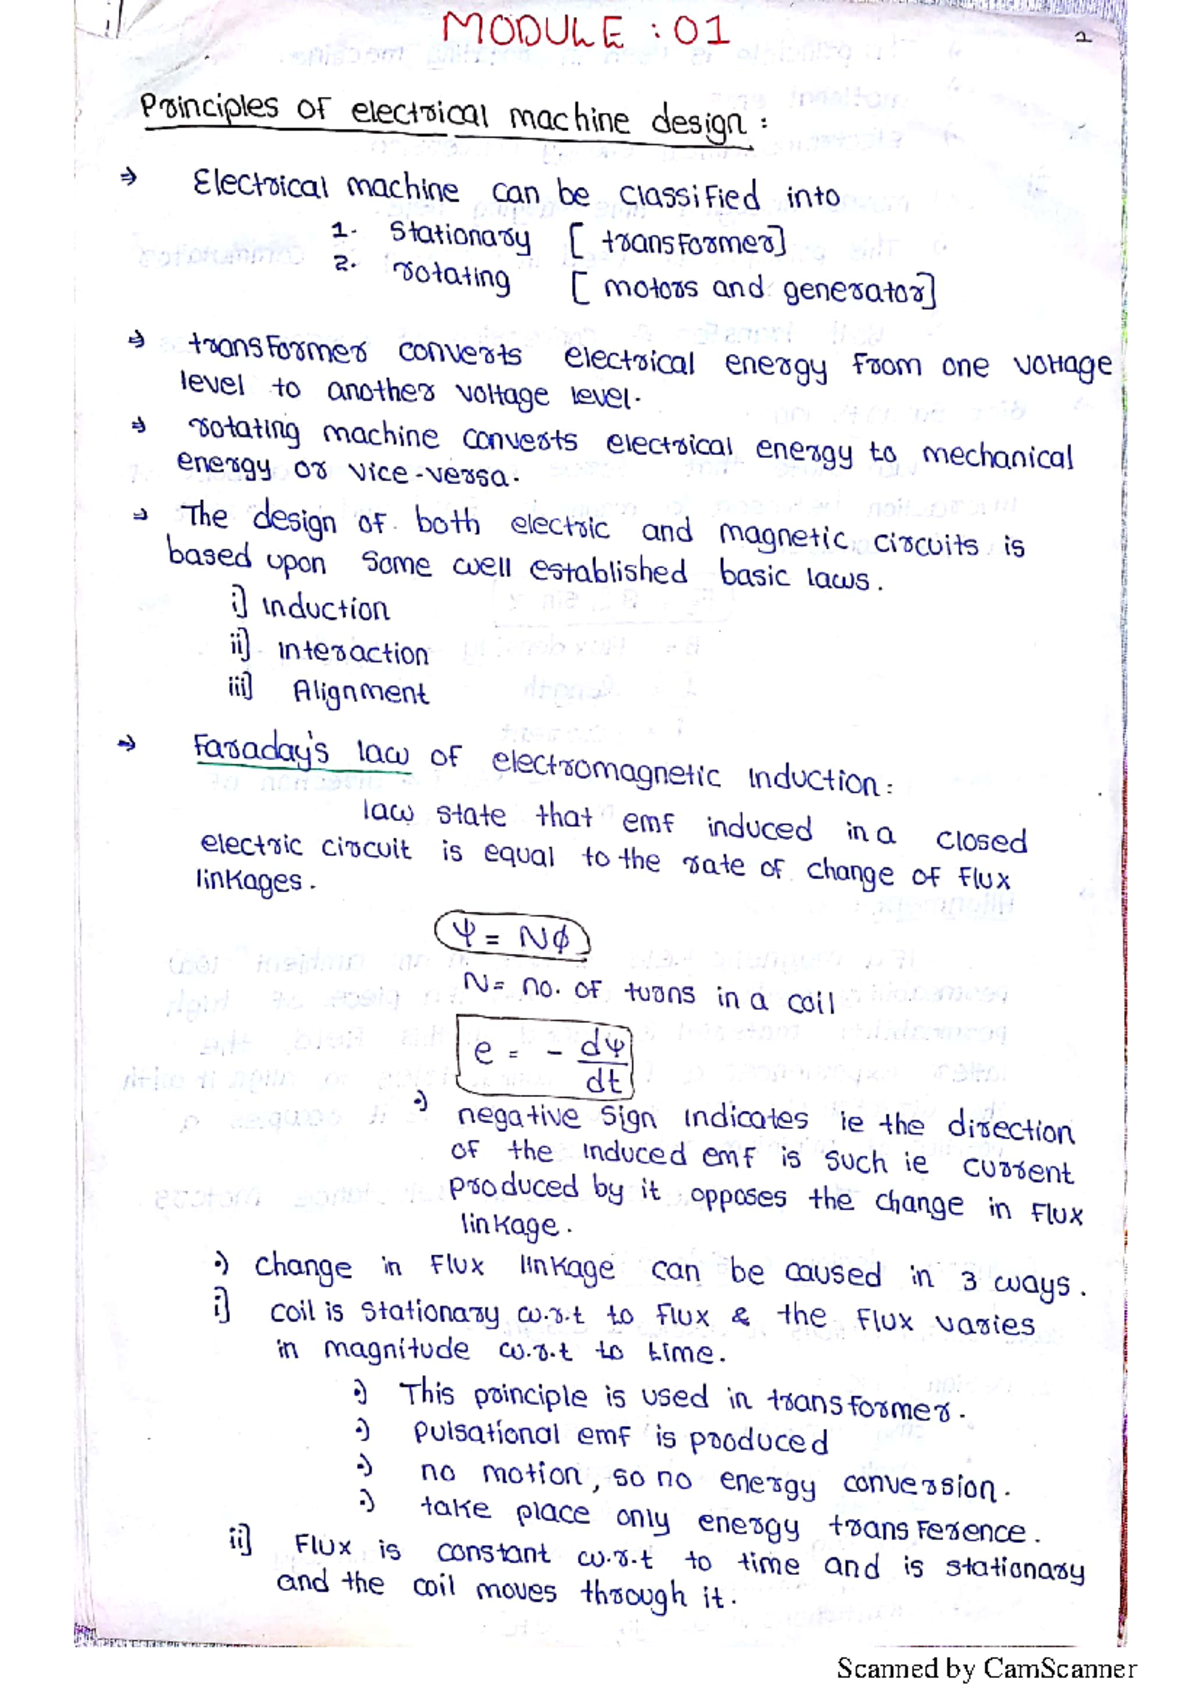 MODULE : 01
2
Principles of electrical machine design :
⇒ Electrical machine can be classified into
1. Stationary [ transformer]
2. rotating [ motors and generator]
⇒ transformer converts electrical energy from one voltage
level to another voltage level.
⇒ rotating machine converts electrical energy to mechanical
energy or vice-versa.
⇒ The design of both electric and magnetic circuits is
based upon some well established basic laws.
i] Induction
ii] Interaction
iii] Alignment
⇒ Faraday's law of electromagnetic Induction :
law state that emf induced in a closed
electric circuit is equal to the rate of change of flux
linkages.
Ψ = NΦ
N = no. of turns in a coil
e = - dΨ/dt
•) negative sign indicates ie the direction
of the induced emf is such ie current
produced by it opposes the change in flux
linkage.
•) change in flux linkage can be caused in 3 ways.
i] coil is stationary w.r.t to flux & the flux varies
in magnitude w.r.t to time.
•) This principle is used in transformer.
•) pulsational emf is produced
•) no motion, so no energy conversion.
•) take place only energy transference.
ii] Flux is constant w.r.t to time and is stationary
and the coil moves through it.
Scanned by CamScanner